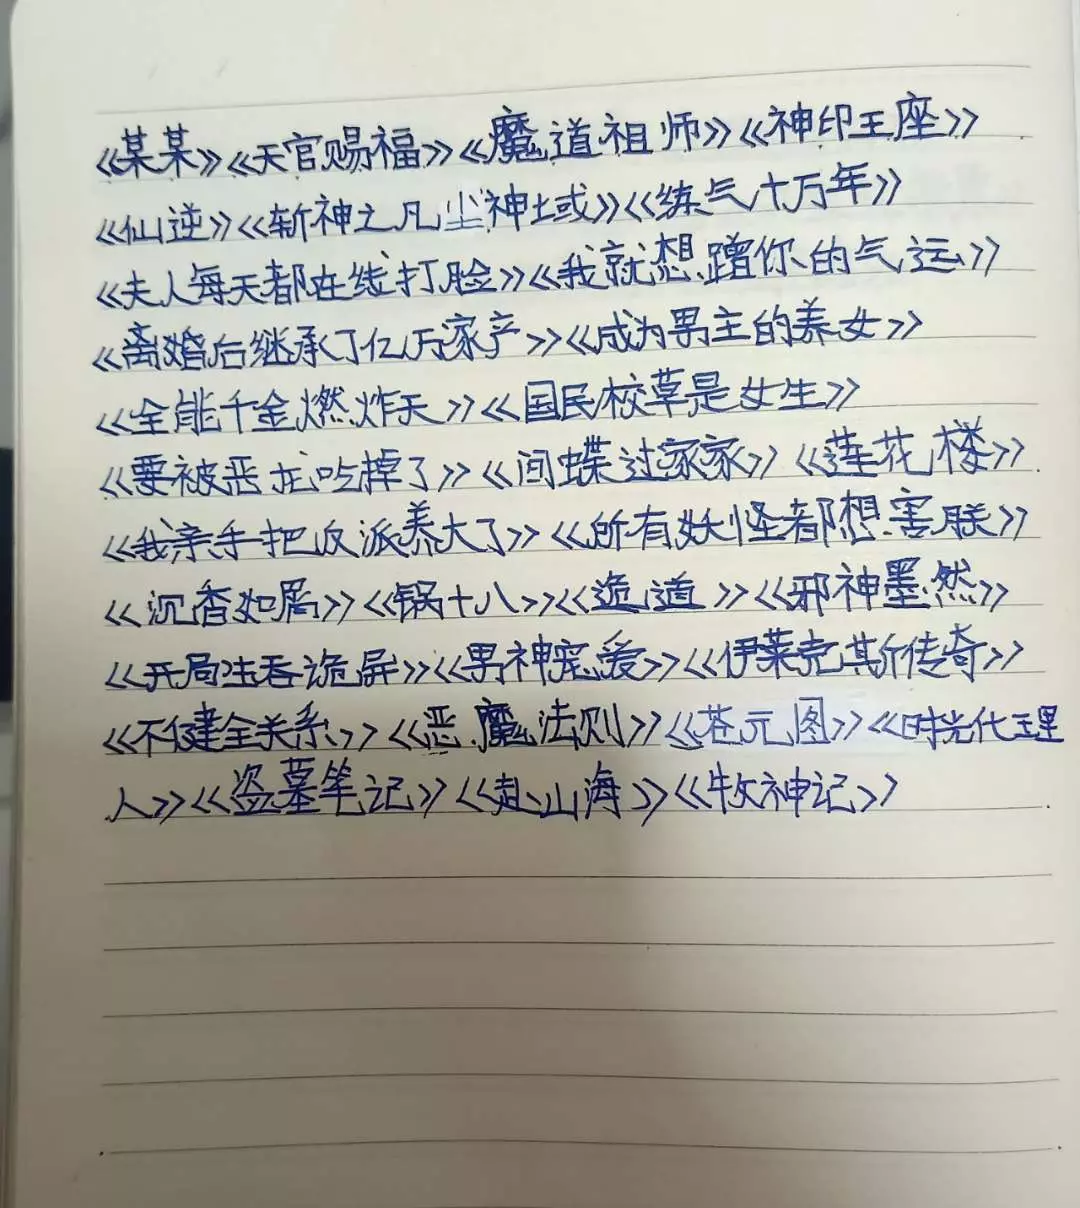 《某某》《天官赐福》《魔道祖师》《神印王座》
《仙逆》《斩神之凡尘神域》《练气十万年》
《夫人每天都在线打脸》《我就想蹭你的气运》
《离婚后继承了亿万家产》《成为男主的养女》
《全能千金燃炸天》《国民校草是女生》
《要被恶龙吃掉了》《间蝶过家家》《莲花楼》
《我亲手把反派养大了》《所有妖怪都想害朕》
《沉香如屑》《锅十八》《诡道》《邪神墨然》
《开局生吞诡异》《男神宠爱》《伊莱克斯传奇》
《不健全关系》《恶魔法则》《苍元图》《时光代理
人》《盗墓笔记》《赴山海》《牧神记》